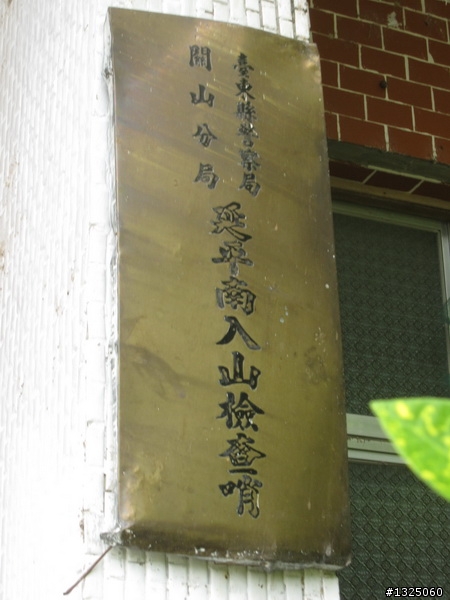 臺東縣警察局
關山分局
延平南入山檢查哨
#1325060